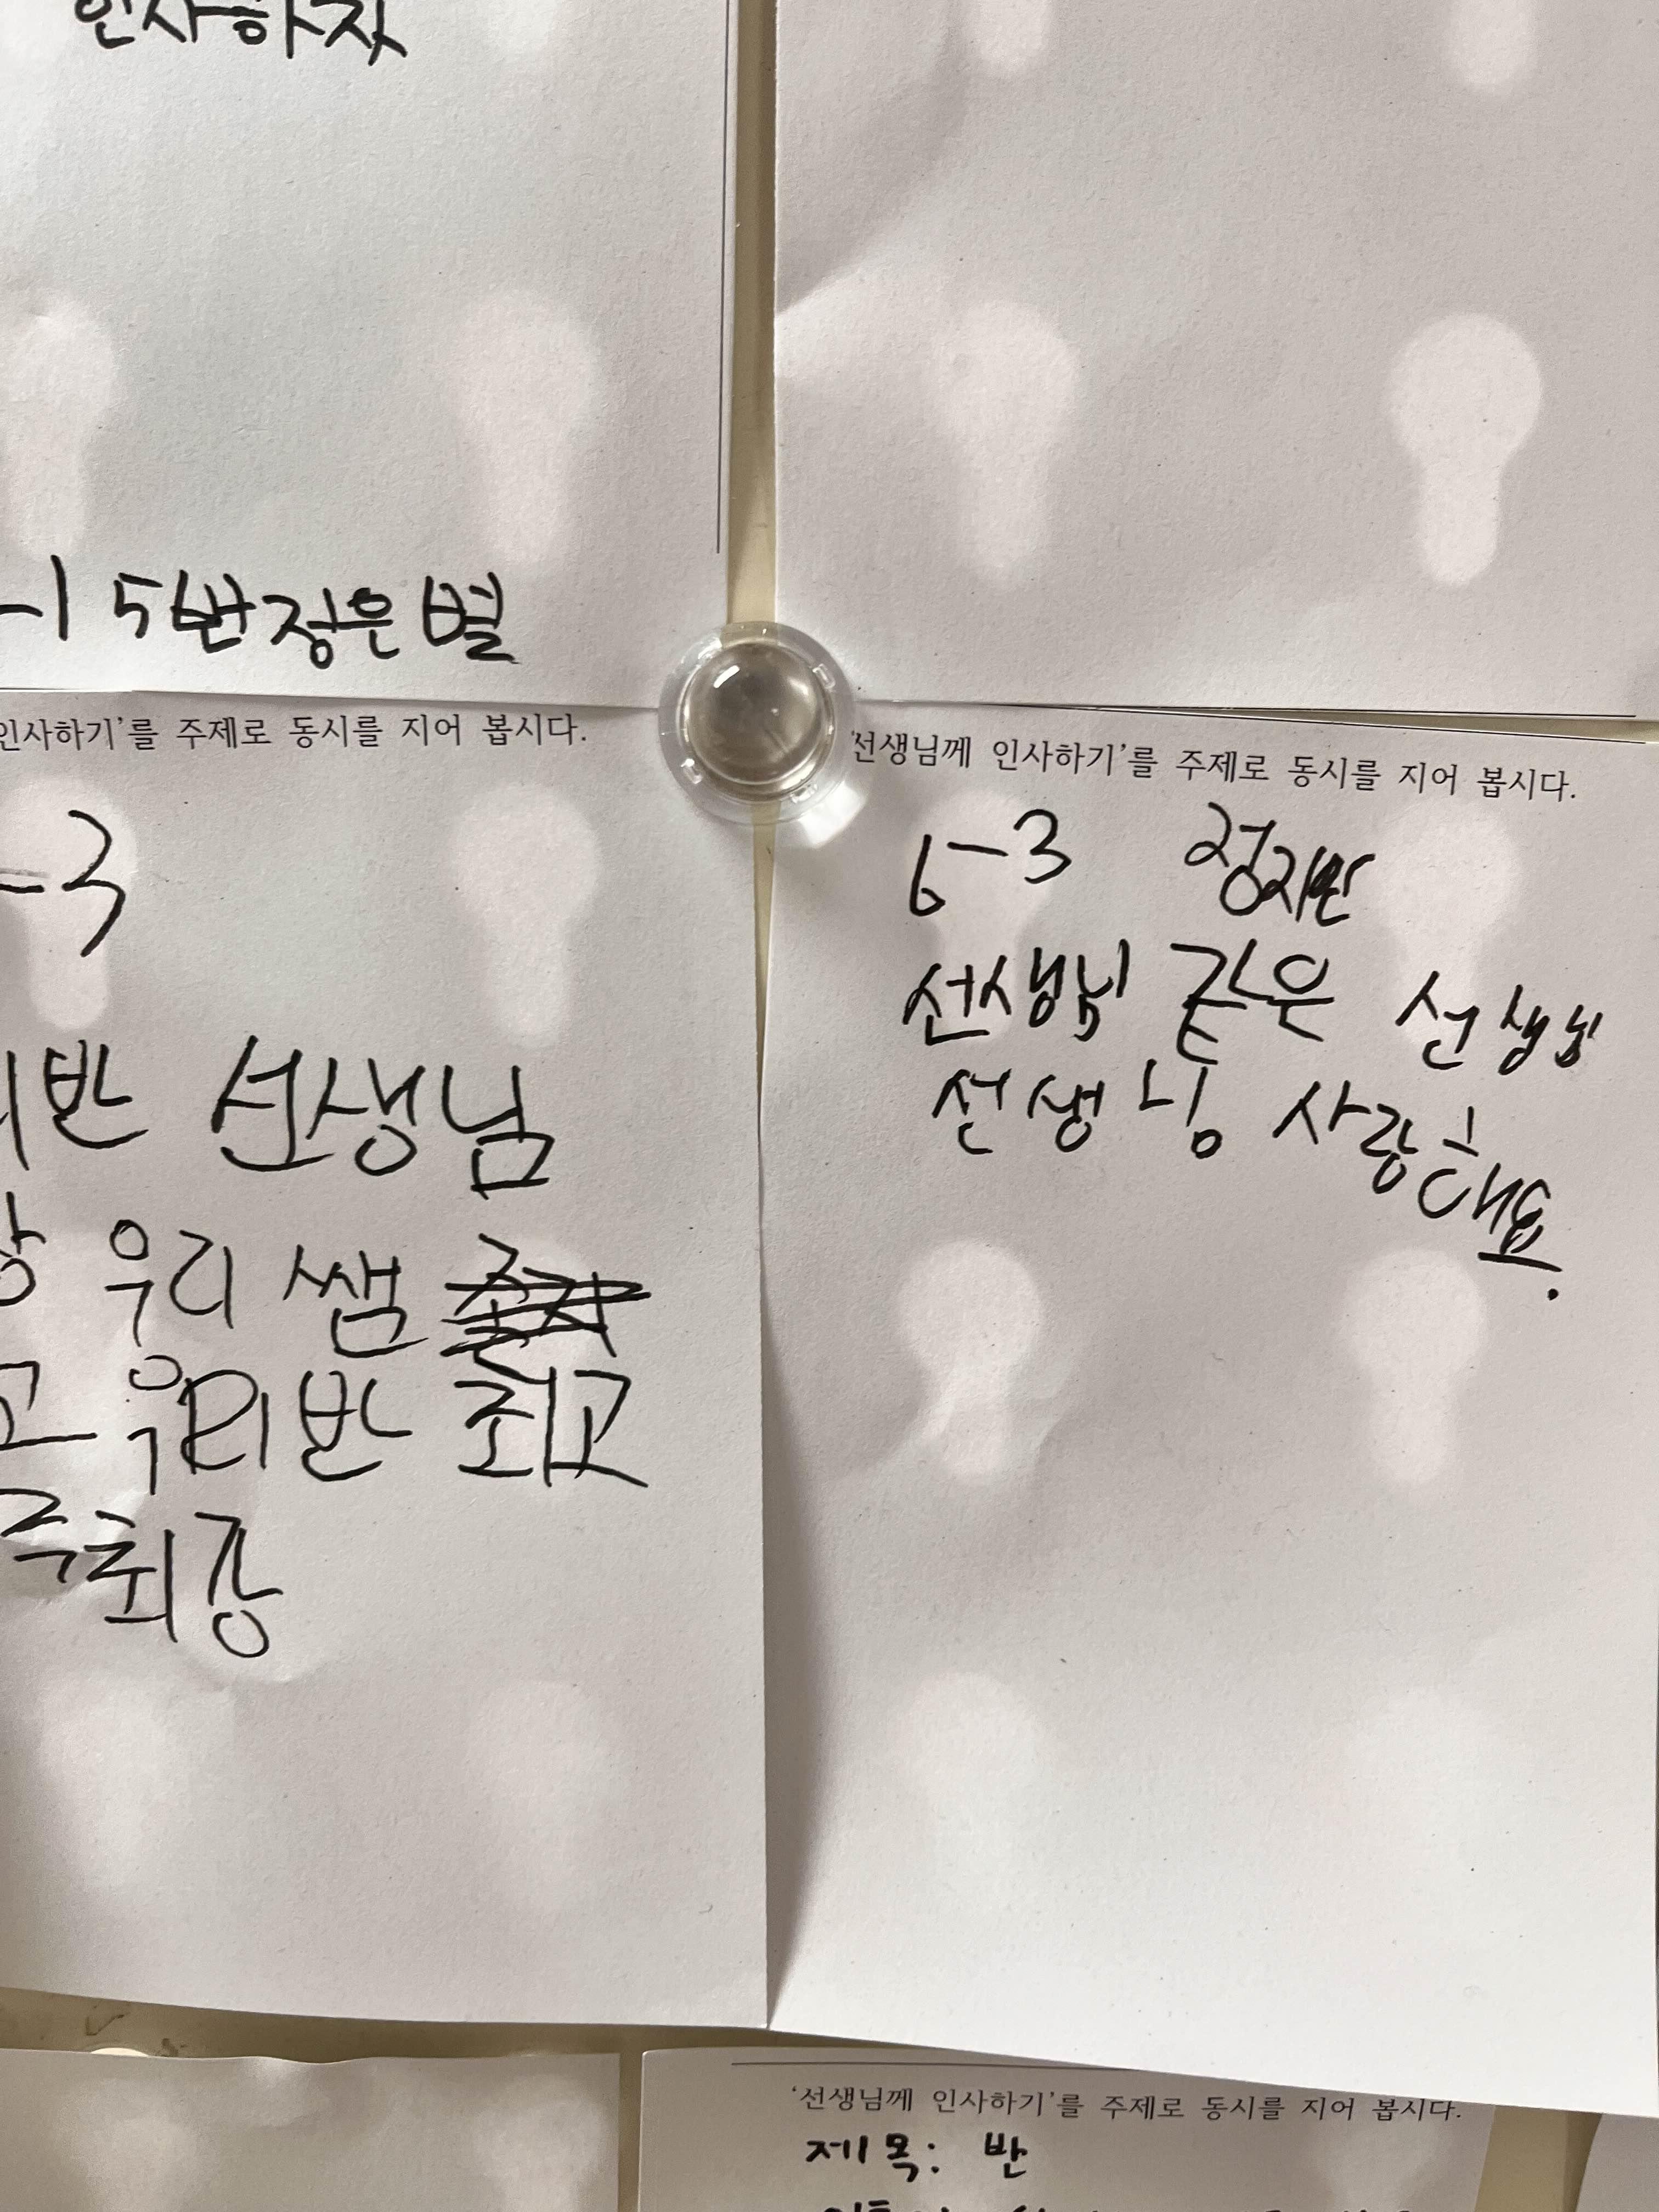 인사하자
-1 5반 정은별
인사하기'를 주제로 동시를 지어 봅시다.
-3
반 선생님
우리 쌤
고 우리반 최고
주최강
'선생님께 인사하기'를 주제로 동시를 지어 봅시다.
6-3
선생님 같은 선생님
선생님 사랑해요.
'선생님께 인사하기'를 주제로 동시를 지어 봅시다.
제목: 반